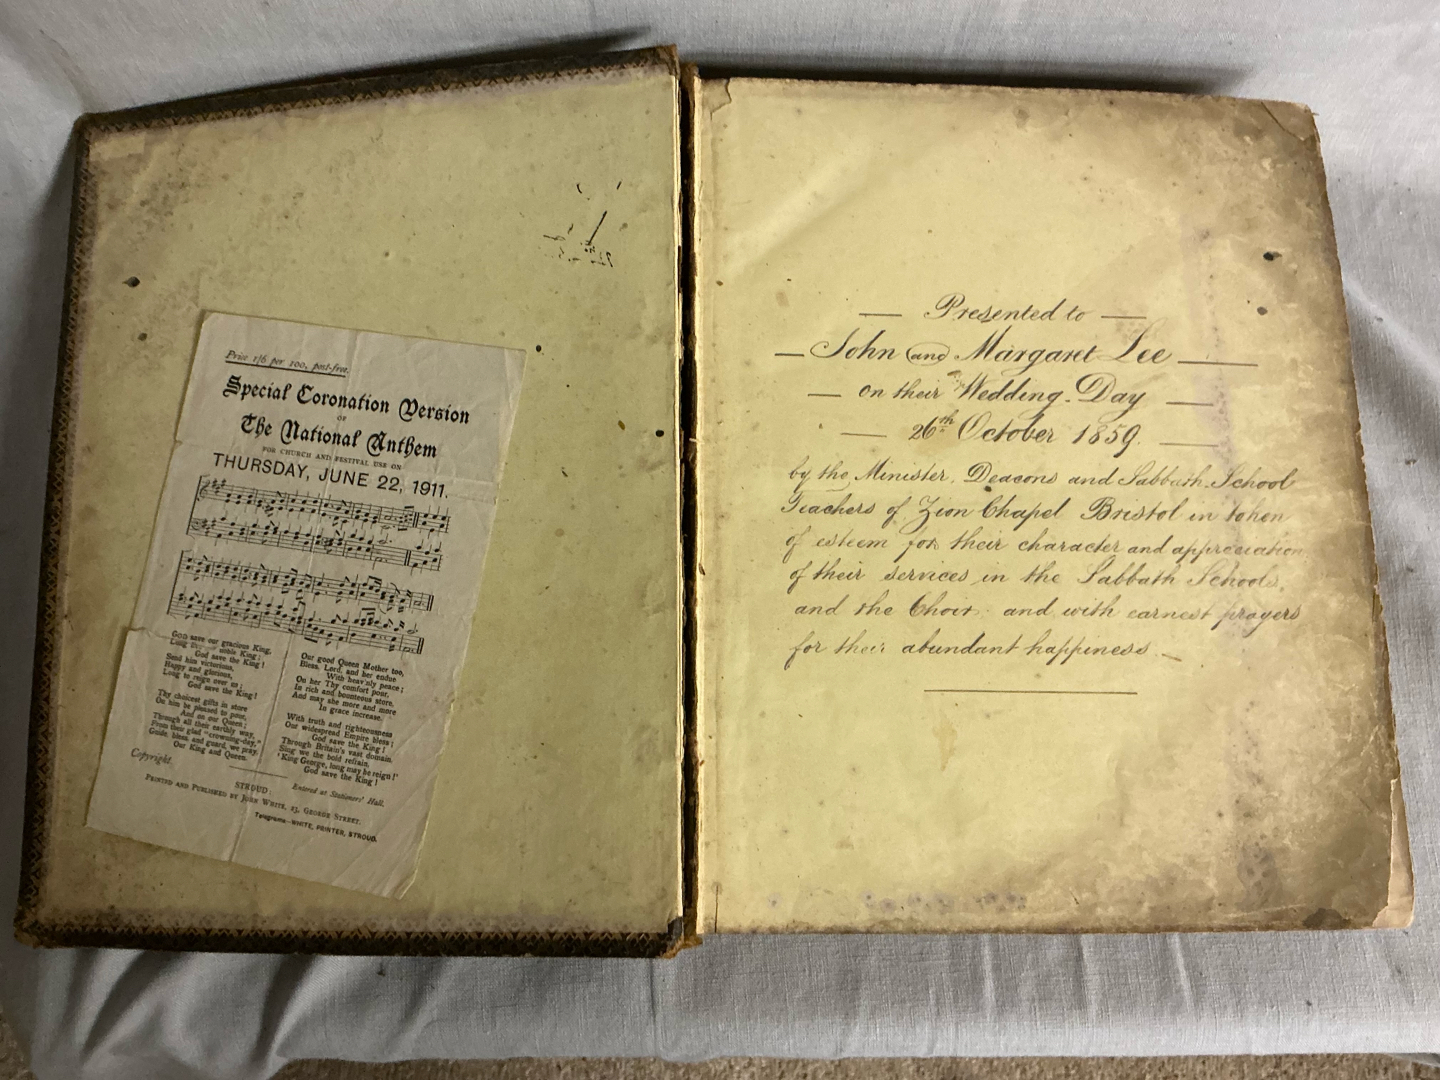 Price 1/6 per 100, post-free.
Special Coronation Version
OF
The National Anthem
FOR CHURCH AND FESTIVAL USE ON
THURSDAY, JUNE 22, 1911.
GOD save our gracious King,
Long noble King;
God save the King!
Send him victorious,
Happy and glorious,
Long to reign over us;
God save the King!
Thy choicest gifts in store
On him be pleased to pour,
And on our Queen;
Through all their earthly way,
From their glad "crowning-day,"
Guide, bless, and guard, we pray,
Our King and Queen.
Our good Queen Mother too,
Bless, Lord, and her endue
With heav'nly peace;
On her Thy comfort pour,
In rich and bounteous store,
And may she more and more
In grace increase.
With truth and righteousness
Our widespread Empire bless;
God save the King!
Through Britain's vast domain,
Sing we the bold refrain,
'King George, long may he reign!'
God save the King!
Copyright.
Entered at Stationers' Hall.
STROUD:
PRINTED AND PUBLISHED BY JOHN WHITE, 23, GEORGE STREET.
Telegrams—WHITE, PRINTER, STROUD.
Presented to
John and Margaret Lee
on their Wedding-Day
26th October 1859.
by the Minister, Deacons and Sabbath-School
Teachers of Zion Chapel Bristol in token
of esteem for their character and appreciation
of their services in the Sabbath Schools,
and the Choir: and with earnest prayers
for their abundant happiness.